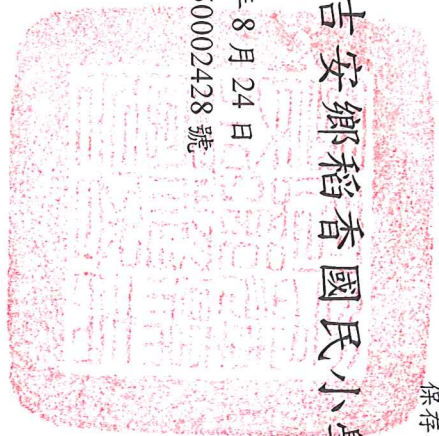 保存
吉安鄉稻香國民小學
年 8 月 24 日
0002428 號